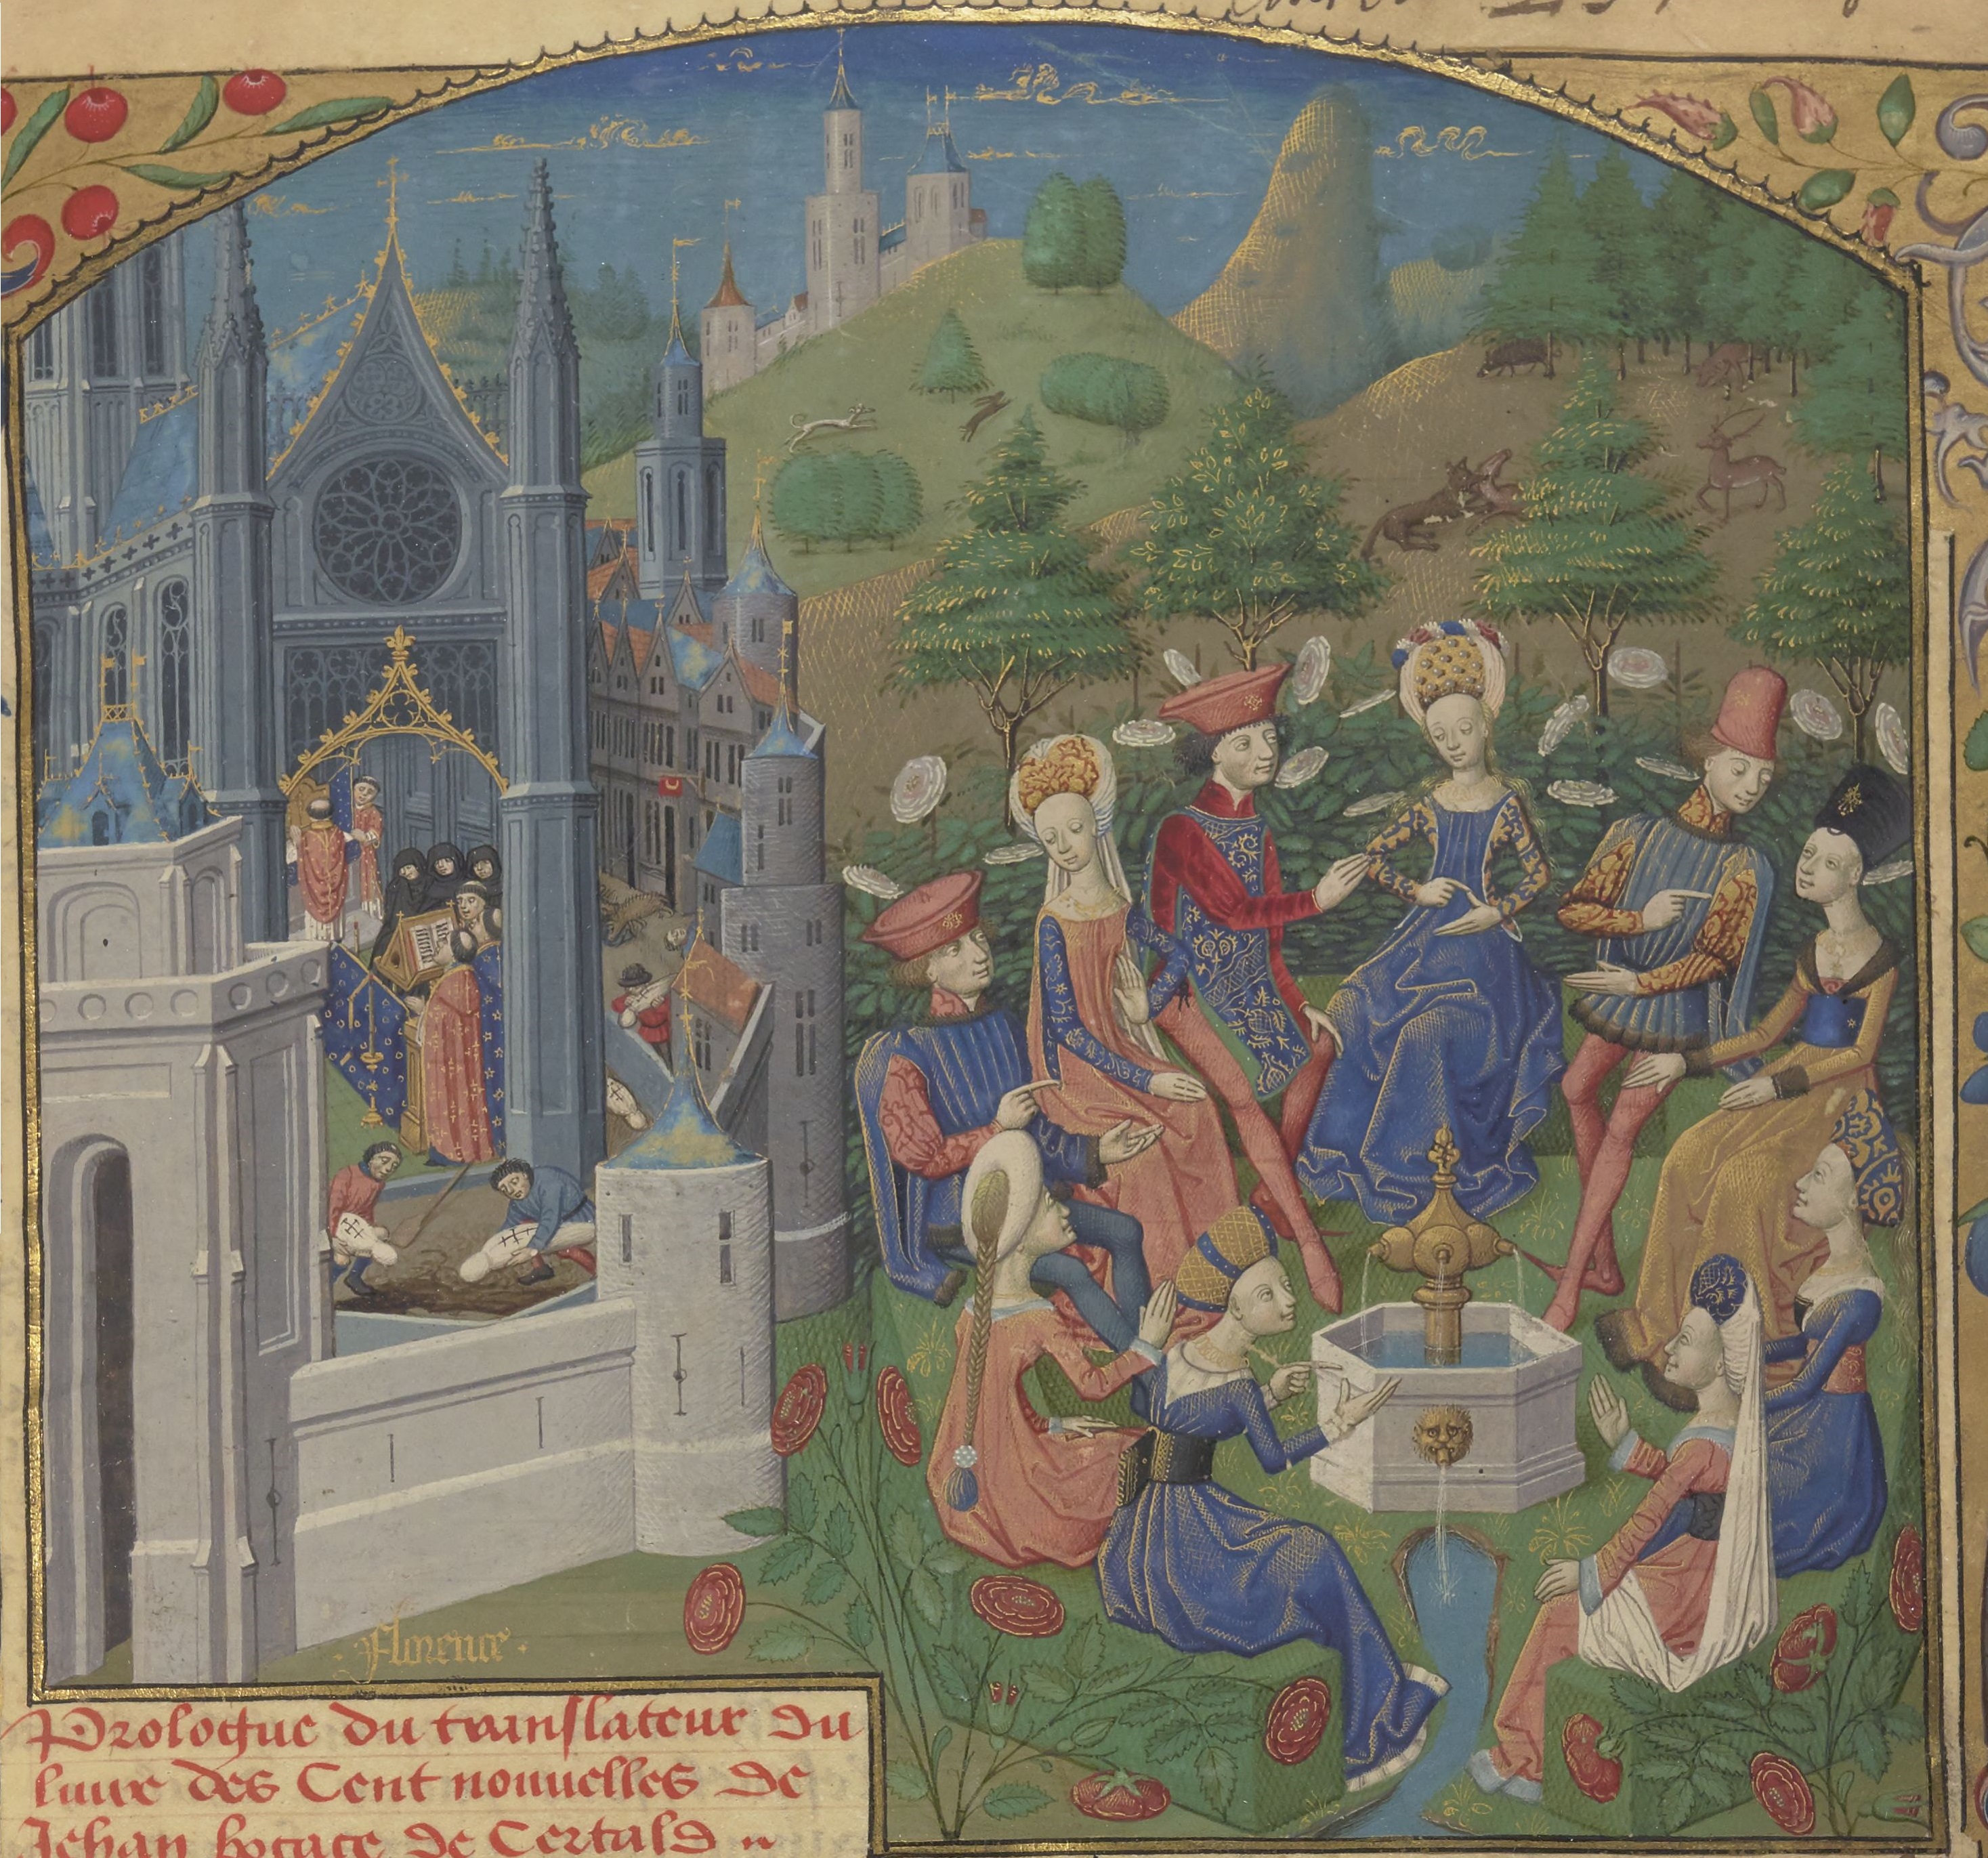 Florence
Prologue du translateur du
liure des Cent nouuelles de
Jehan bocace de Certald